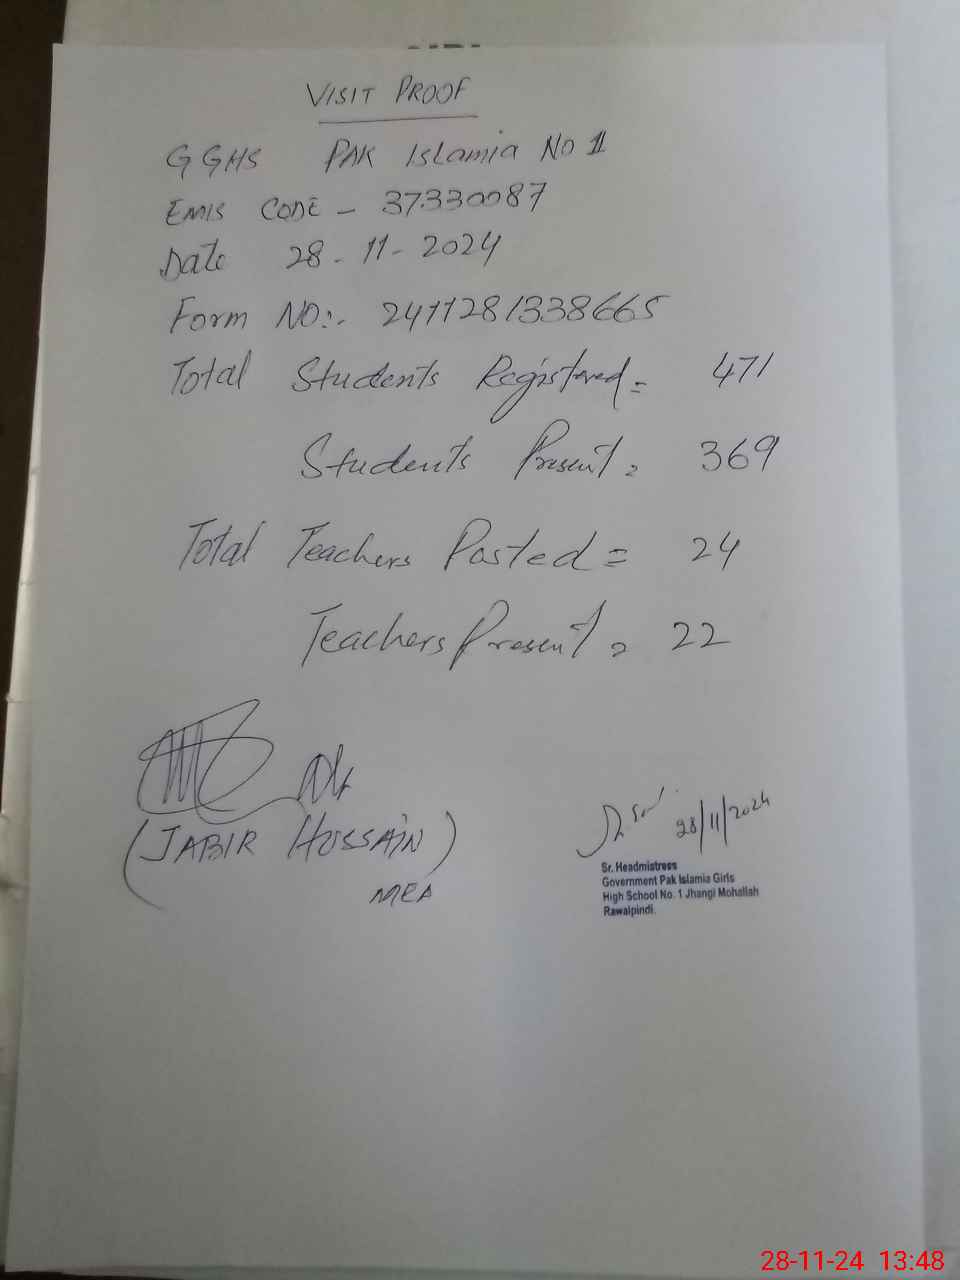 VISIT PROOF
GGHS PAK Islamia No 1
EMIS CODE - 37330087
Date 28-11-2024
Form NO:- 2411281338665
Total Students Registered = 471
Students Present = 369
Total Teachers Posted = 24
Teachers Present = 22
(JABIR HUSSAIN)
MEA
28/11/2024
Sr. Headmistress
Government Pak Islamia Girls
High School No. 1 Jhangi Mohallah
Rawalpindi.
28-11-24 13:48